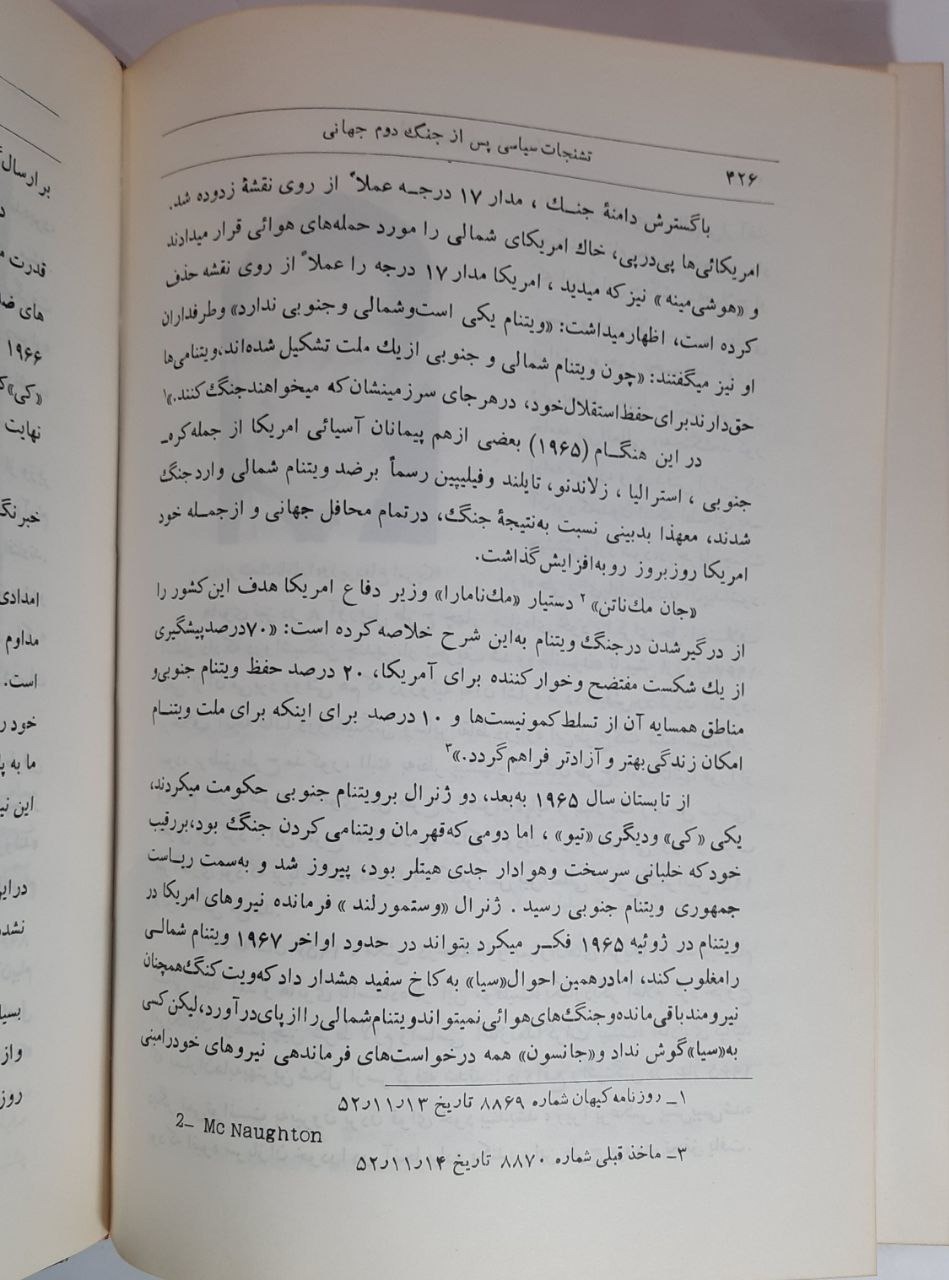 ۴۲۶
تشنجات سیاسی پس از جنگ دوم جهانی
باگسترش دامنهٔ جنـگ ، مدار ۱۷ درجـه عملاً از روی نقشهٔ زدوده شد.
امریکائی‌ها پی‌درپی، خاك امریکای شمالی را مورد حمله‌های هوائی قرار میدادند
و «هوشی‌مینه» نیز که میدید ، امریکا مدار ۱۷ درجه را عملاً از روی نقشه حذف
کرده است، اظهارمیداشت: «ویتنام یکی است‌وشمالی وجنوبی ندارد» وطرفداران
او نیز میگفتند: «چون ویتنام شمالی و جنوبی ازیك ملت تشکیل شده‌اند،ویتنامی‌ها
حق‌دارندبرای‌حفظ‌استقلال‌خود، درهرجای سرزمینشان‌که میخواهندجنگ‌کنند.»۱
در این هنگـام (۱۹۶۵) بعضی ازهم پیمانان آسیائی امریکا از جمله‌کره‌ـ
جنوبی ، استرالیا ، زلاندنو، تایلند وفیلیپین رسماً برضد ویتنام شمالی واردجنگ
شدند، معهذا بدبینی نسبت به‌نتیجهٔ جنگ، درتمام محافل جهانی و ازجمـله خود
امریکا روزبروز روبه‌افزایش‌گذاشت.
«جان مك‌ناتن» ۲ دستیار «مك‌نامارا» وزیر دفاع امریکا هدف این‌کشور را
از درگیرشدن درجنگ ویتنام به‌این شرح خلاصه‌کرده است: «۷۰درصدپیشگیری
از یك شکست مفتضح وخوارکننده برای آمریکا، ۲۰ درصد حفظ ویتنام جنوبی‌و
مناطق همسایه آن از تسلط‌کمونیست‌ها و ۱۰درصد برای اینکه برای ملت ویتنـام
امکان زندگی‌بهتر و آزادتر فراهم‌گردد.»۳
از تابستان سال ۱۹۶۵ به‌بعد، دو ژنرال برویتنام جنوبی حکومت میکردند،
یکی «کی» ودیگری «تیو» ، اما دومی که‌قهرمان ویتنامی‌کردن جنگ بود،بررقیب
خودکه خلبانی سرسخت وهوادار جدی هیتلر بود، پیروز شد و به‌سمت ریـاست
جمهوری ویتنام جنوبی رسید . ژنرال «وستمورلند » فرمانده نیروهای امریکا در
ویتنام در ژوئیه ۱۹۶۵ فکـر میکرد بتواند در حدود اواخر ۱۹۶۷ ویتنام شمالـی
رامغلوب‌کند، امادرهمین احوال«سیا» به‌کاخ سفید هشدار دادکه‌ویت‌کنگ‌همچنان
نیرومندباقی‌مانده‌وجنگ‌های‌هوائی‌نمیتواندویتنام‌شمالی‌راازپای‌درآورد،لیکن‌کسی
به«سیا»گوش نداد و«جانسون» همه درخواست‌های فرماندهی نیروهای خودرامبنی
۱ـ روزنامه‌کیهان شماره ۸۸۶۹ تاریخ ۵۲٫۱۱٫۱۳
2- Mc Naughton
۳ـ ماخذ قبلی شماره ۸۸۷۰ تاریخ ۵۲٫۱۱٫۱۴
برارسال
قدرت
های
۱۹۶۶
«کی»
نهایت
امدادی
مداوم
است.
ما به